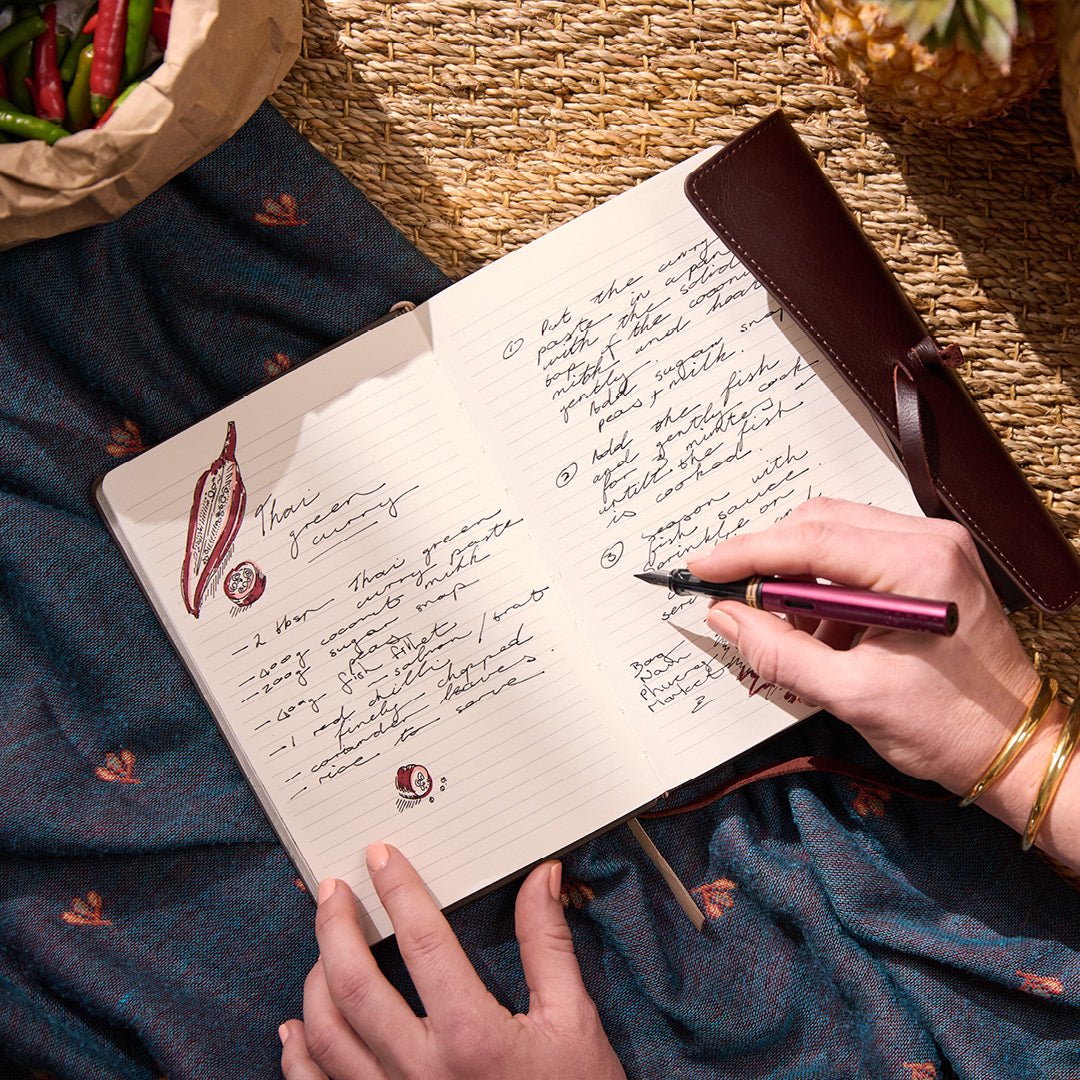 Thai
green
curry
- 2 tbsp Thai green
curry paste
- 400g coconut milk
- 200g sugar snap
peas
- 400g fish fillet
salmon / trout
- 1 red chilli
finely chopped
- coriander leaves
- rice to serve.
① Put the curry
paste in a pan
with the solid
top of the coconut
milk and heat
gently.
Add sugar snap
peas + milk.
② Add the fish
and gently cook
for
until the fish
is cooked.
③ Season with
fish sauce.
Sprinkle on
Market